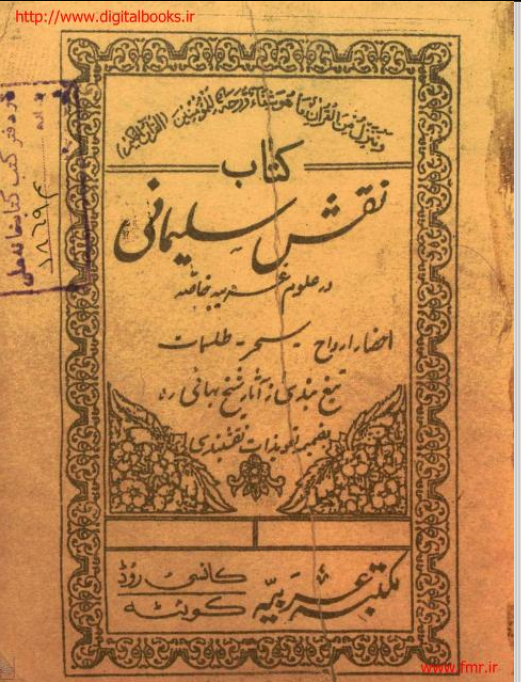 http://www.digitalbooks.ir
وننزل من القرآن ما هو شفاء ورحمة للمؤمنین (القرآن الحکیم)
کتاب
نقش سلیمانی
در علوم غریبه خاصه
احضار ارواح - سحر - طلسمات
تیغ بندی از آثار شیخ بهائی ره
بضمیمه تعویذات نقشبندی
مکتبه عربیه
کانسی روڈ
کوئٹه
دفتر کتب کتابخانه ملی
۱۸۶۹۴
www.fmr.ir